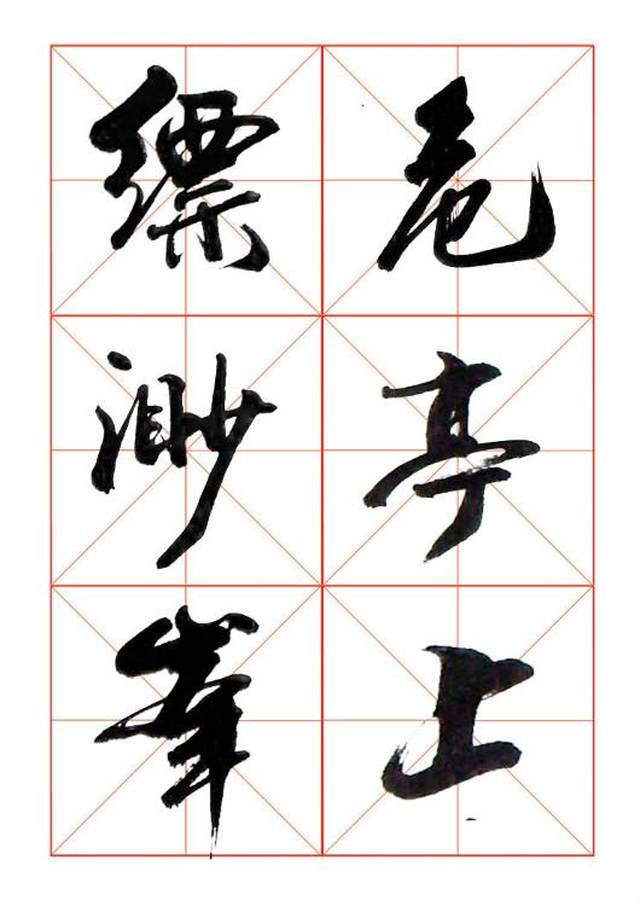 危亭上
縹渺峯